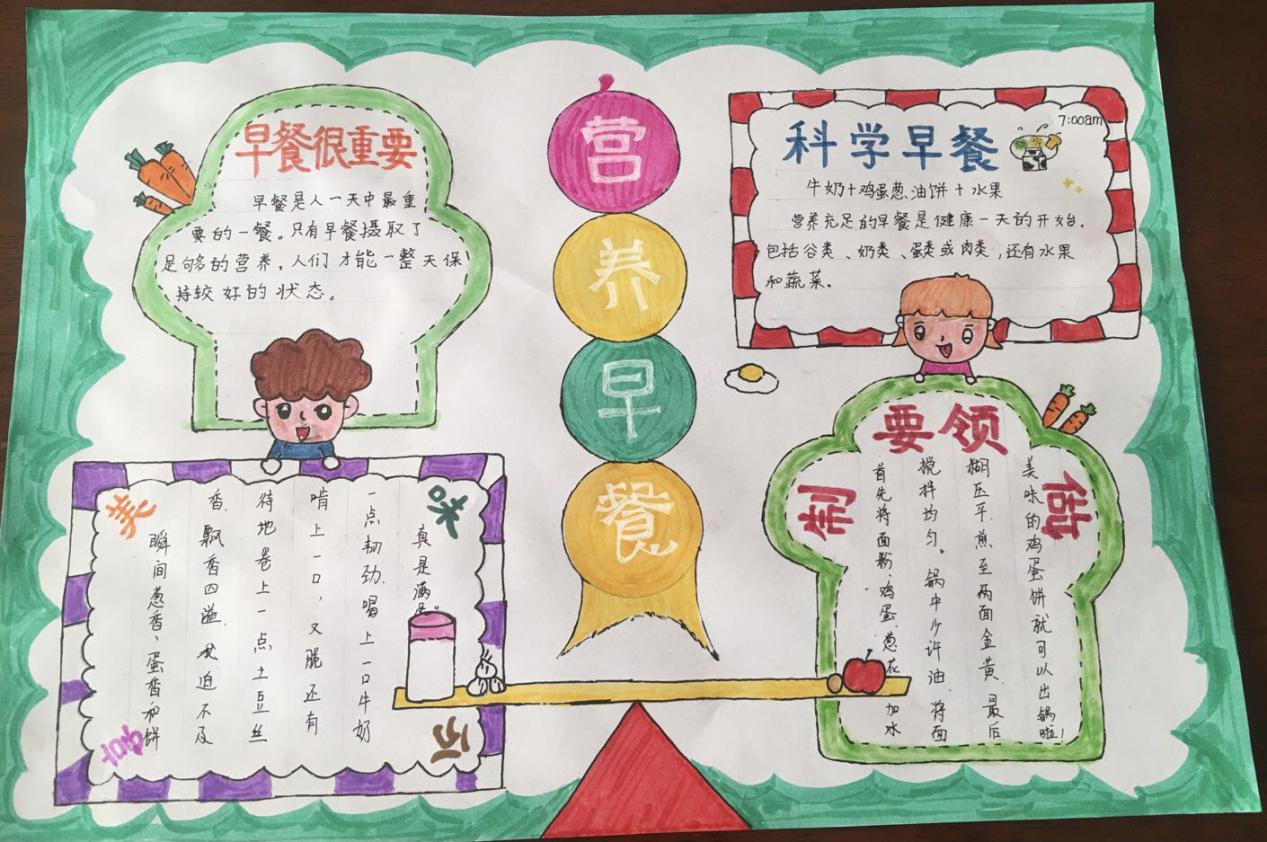 营养早餐
早餐很重要
早餐是人一天中最重
要的一餐。只有早餐摄取了
足够的营养，人们才能一整天保
持较好的状态。
科学早餐
7:00am
牛奶+鸡蛋葱油饼+水果
营养充足的早餐是健康一天的开始.
包括谷类、奶类、蛋类或肉类,还有水果
和蔬菜。
美味
分享
瞬间葱香、蛋香和饼
香,飘香四溢.我迫不及
待地卷上一点土豆丝
啃上一口,又脆还有
一点韧劲.喝上一口牛奶
真是满足。
制做
要领
首先将面粉、鸡蛋、葱花加水
搅拌均匀。锅中少许油.将面
糊压平.煎至两面金黄.最后
美味的鸡蛋饼就可以出锅啦!